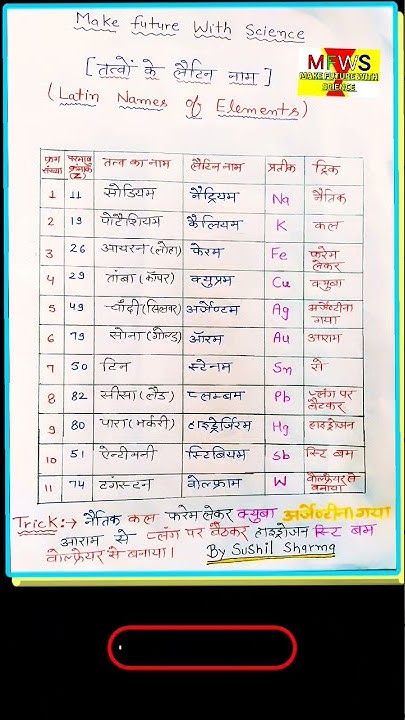 Make future With Science
MFWS
MAKE FUTURE WITH
SCIENCE
[तत्वों के लैटिन नाम]
(Latin Names of Elements)
क्रम संख्या परमाणु क्रमांक (Z) तत्व का नाम लैटिन नाम प्रतीक ट्रिक
1 11 सोडियम नैट्रियम Na नैतिक
2 19 पोटैशियम कैलियम K कल
3 26 आयरन (लोहा) फेरम Fe फरेम लेकर
4 29 तांबा (कॉपर) क्युप्रम Cu क्युबा
5 49 चाँदी (सिल्वर) अर्जेण्टम Ag अर्जेण्टीना गया
6 79 सोना (गोल्ड) ऑरम Au आराम
7 50 टिन स्टेनम Sn से
8 82 सीसा (लैड) प्लम्बम Pb प्लंग पर बैठकर
9 80 पारा (मर्करी) हाइड्रेर्जिरम Hg हाइड्रोजन
10 51 ऐन्टीमनी स्टिबियम Sb स्टि बम
11 74 टंगस्टन वोल्फ्राम W वोल्फ्रेयर से बनाया
Trick:→ नैतिक कल फरेम लेकर क्युबा अर्जेण्टीना गया
आराम से प्लंग पर बैठकर हाइड्रोजन स्टि बम
वोल्फ्रेयर से बनाया।
By Sushil Sharma